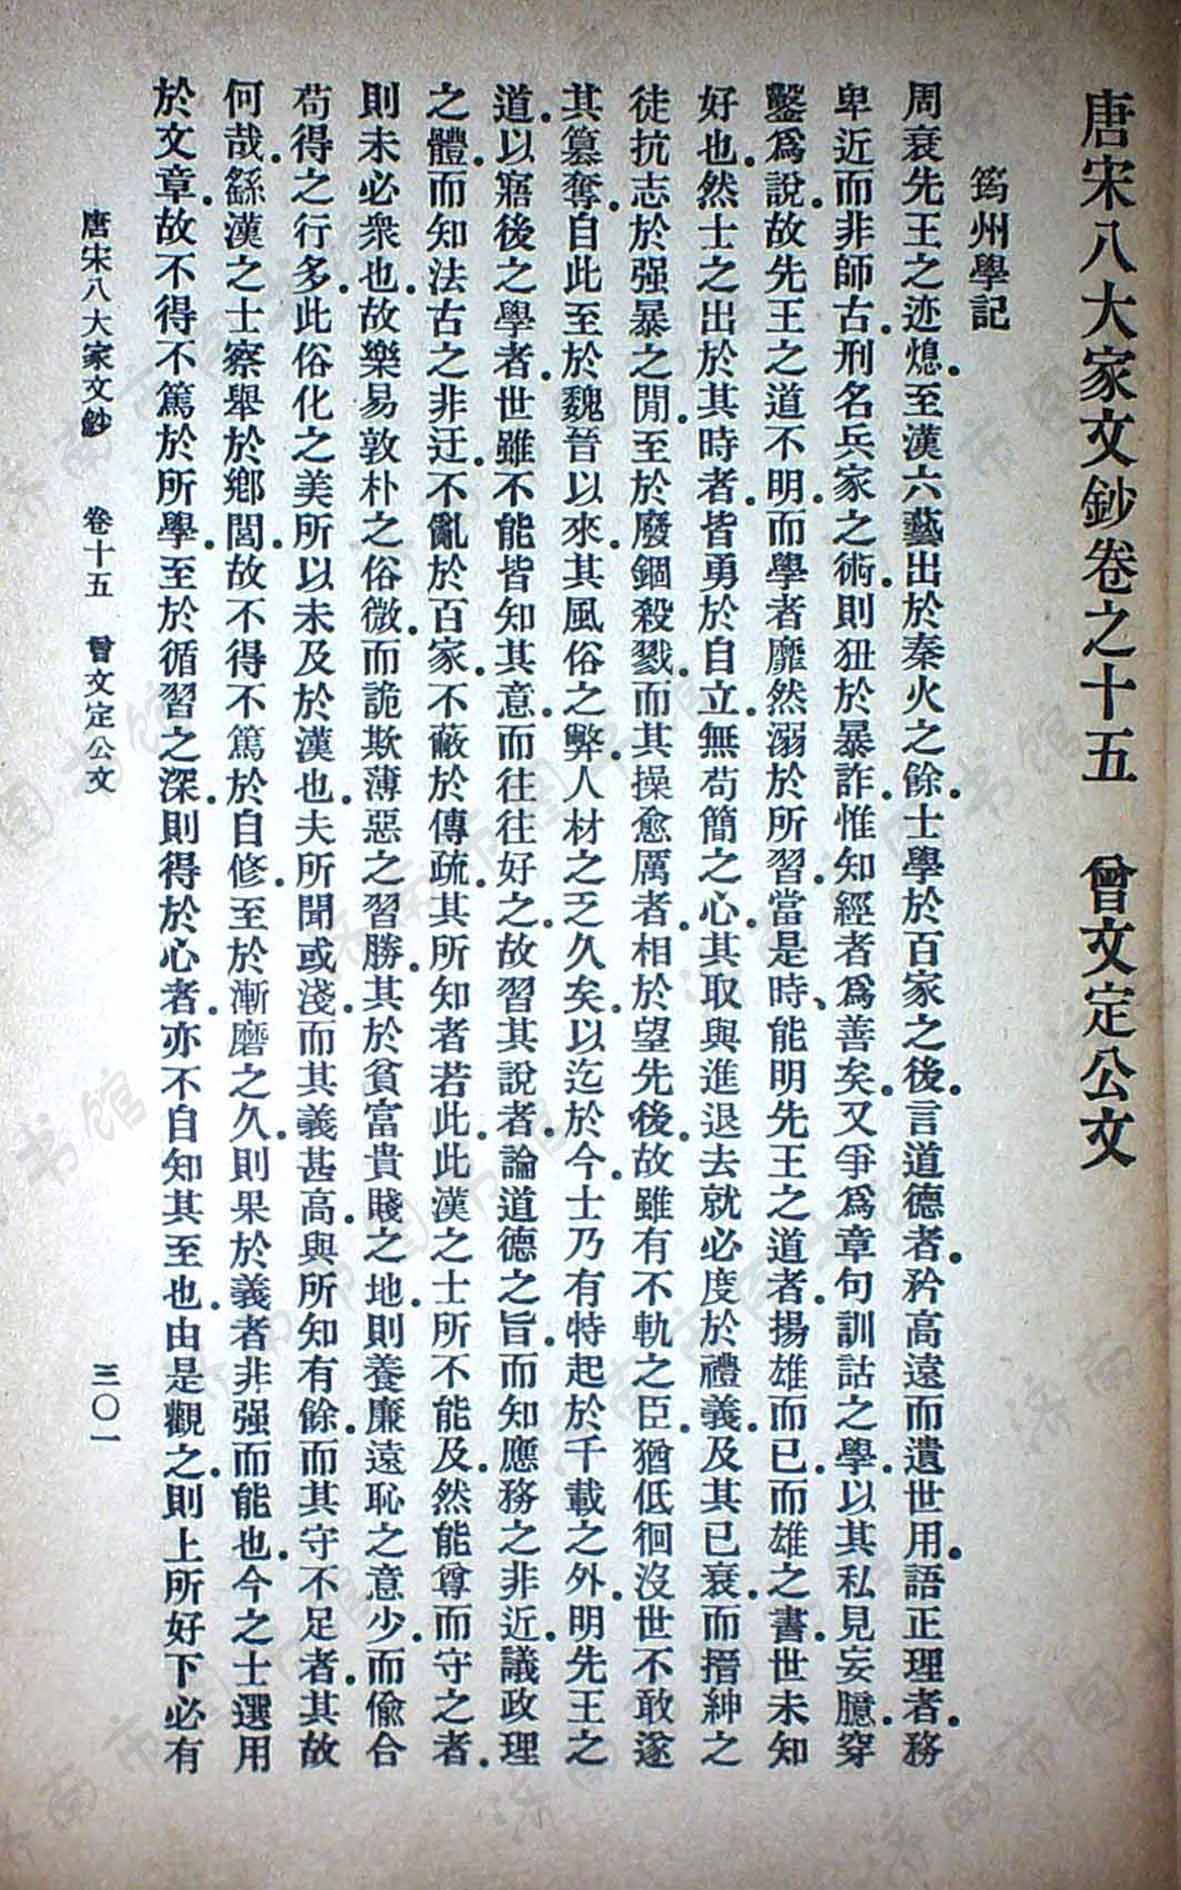 唐宋八大家文鈔卷之十五　曾文定公文
筠州學記
周衰先王之迹熄.至漢六藝出於秦火之餘.士學於百家之後.言道德者.矜高遠而遺世用.語正理者.務
卑近而非師古.刑名兵家之術.則狃於暴詐.惟知經者爲善矣.又爭爲章句訓詁之學.以其私見妄臆.穿
鑿爲說.故先王之道不明.而學者靡然溺於所習.當是時、能明先王之道者.揚雄而已.而雄之書.世未知
好也.然士之出於其時者.皆勇於自立.無苟簡之心.其取與進退去就必度於禮義.及其已衰.而搢紳之
徒抗志於强暴之閒.至於廢錮殺戮.而其操愈厲者.相於望先後.故雖有不軌之臣.猶低徊沒世不敢遂
其篡奪.自此至於魏晉以來.其風俗之弊.人材之乏久矣.以迄於今.士乃有特起於千載之外.明先王之
道.以寤後之學者.世雖不能皆知其意.而往往好之.故習其說者.論道德之旨.而知應務之非近.議政理
之體.而知法古之非迂.不亂於百家.不蔽於傳疏.其所知者若此.此漢之士所不能及.然能尊而守之者.
則未必衆也.故樂易敦朴之俗微.而詭欺薄惡之習勝.其於貧富貴賤之地.則養廉遠恥之意少.而偷合
苟得之行多.此俗化之美.所以未及於漢也.夫所聞或淺.而其義甚高.與所知有餘.而其守不足者.其故
何哉.繇漢之士察舉於鄉閭.故不得不篤於自修.至於漸磨之久.則果於義者非强而能也.今之士選用
於文章.故不得不篤於所學.至於循習之深.則得於心者.亦不自知其至也.由是觀之.則上所好下必有
唐宋八大家文鈔　卷十五　曾文定公文　三〇一